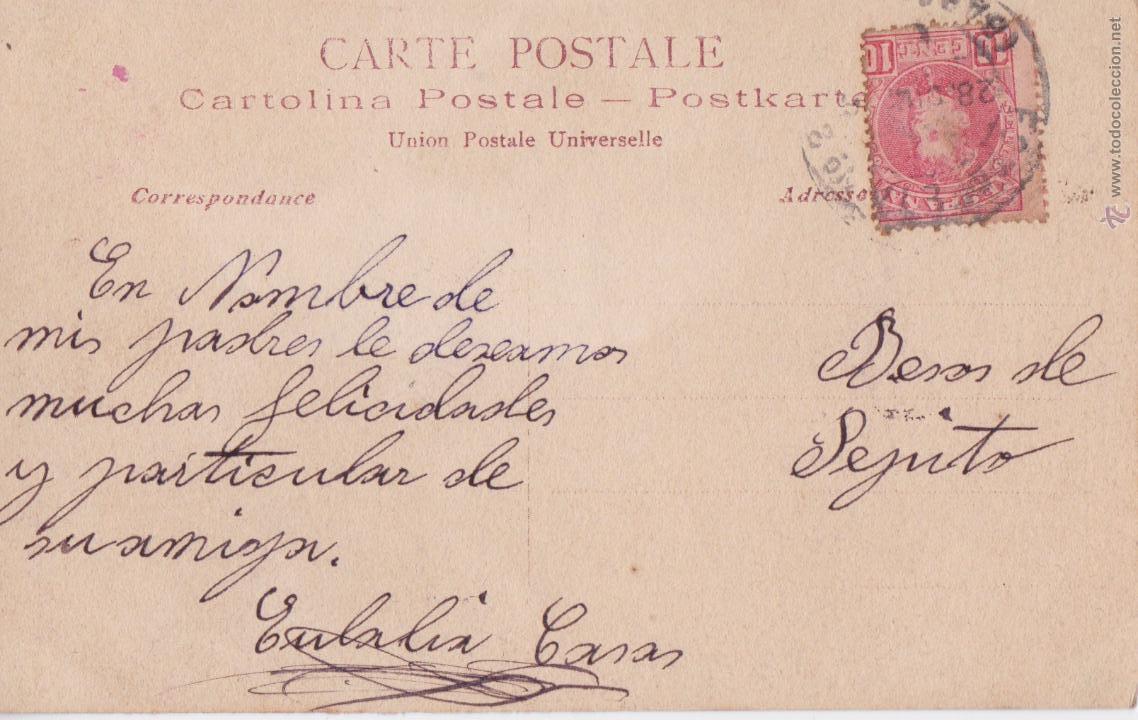 CARTE POSTALE
Cartolina Postale — Postkarte
Union Postale Universelle
Correspondance
Adresse
En Nombre de
mis padres le deseamos
muchas felicidades
y particular de
su amiga.
Eulalia Casas
Besos de
Pepito
www.todocoleccion.net